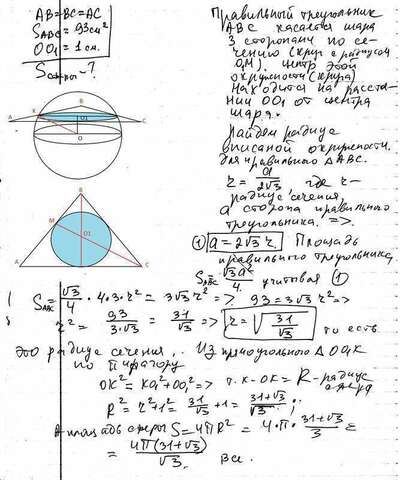 AB=BC=AC
S_ABC=93см²
OO1=1см.
S сферы-?
Правильный треугольник
ABC касается шара
3 сторонами по се-
чению (круг с радиусом
O1M). Центр этой
окружности (круга)
находится на расстоя-
нии OO1 от центра
шара.
Найдём радиус
вписаной окружности.
для правильного △ABC.
r = a/(2√3), где r-
радиус сечения
a сторона правильного
треугольника. =>.
① a = 2√3 r. Площадь
правильного треугольника,
S_ABC = √3a²/4. учитывая ①
B
K
O1
A
C
O
B
M
O1
A
C
S_ABC = √3/4 · 4·3·r² = 3√3 r² => 93 = 3√3 r² =>
r² = 93/(3·√3) = 31/√3 => r = √(31/√3) то есть
это радиус сечения. Из прямоугольного △
по Пифагору
OK² = KO1² + OO1² => т.к OK = R-радиус
шара
R² = r² + 1² = 31/√3 + 1 = (31+√3)/√3;
А площадь сферы S = 4πR² = 4·π·(31+√3)/3 =
= 4π(31+√3)/√3. Все.